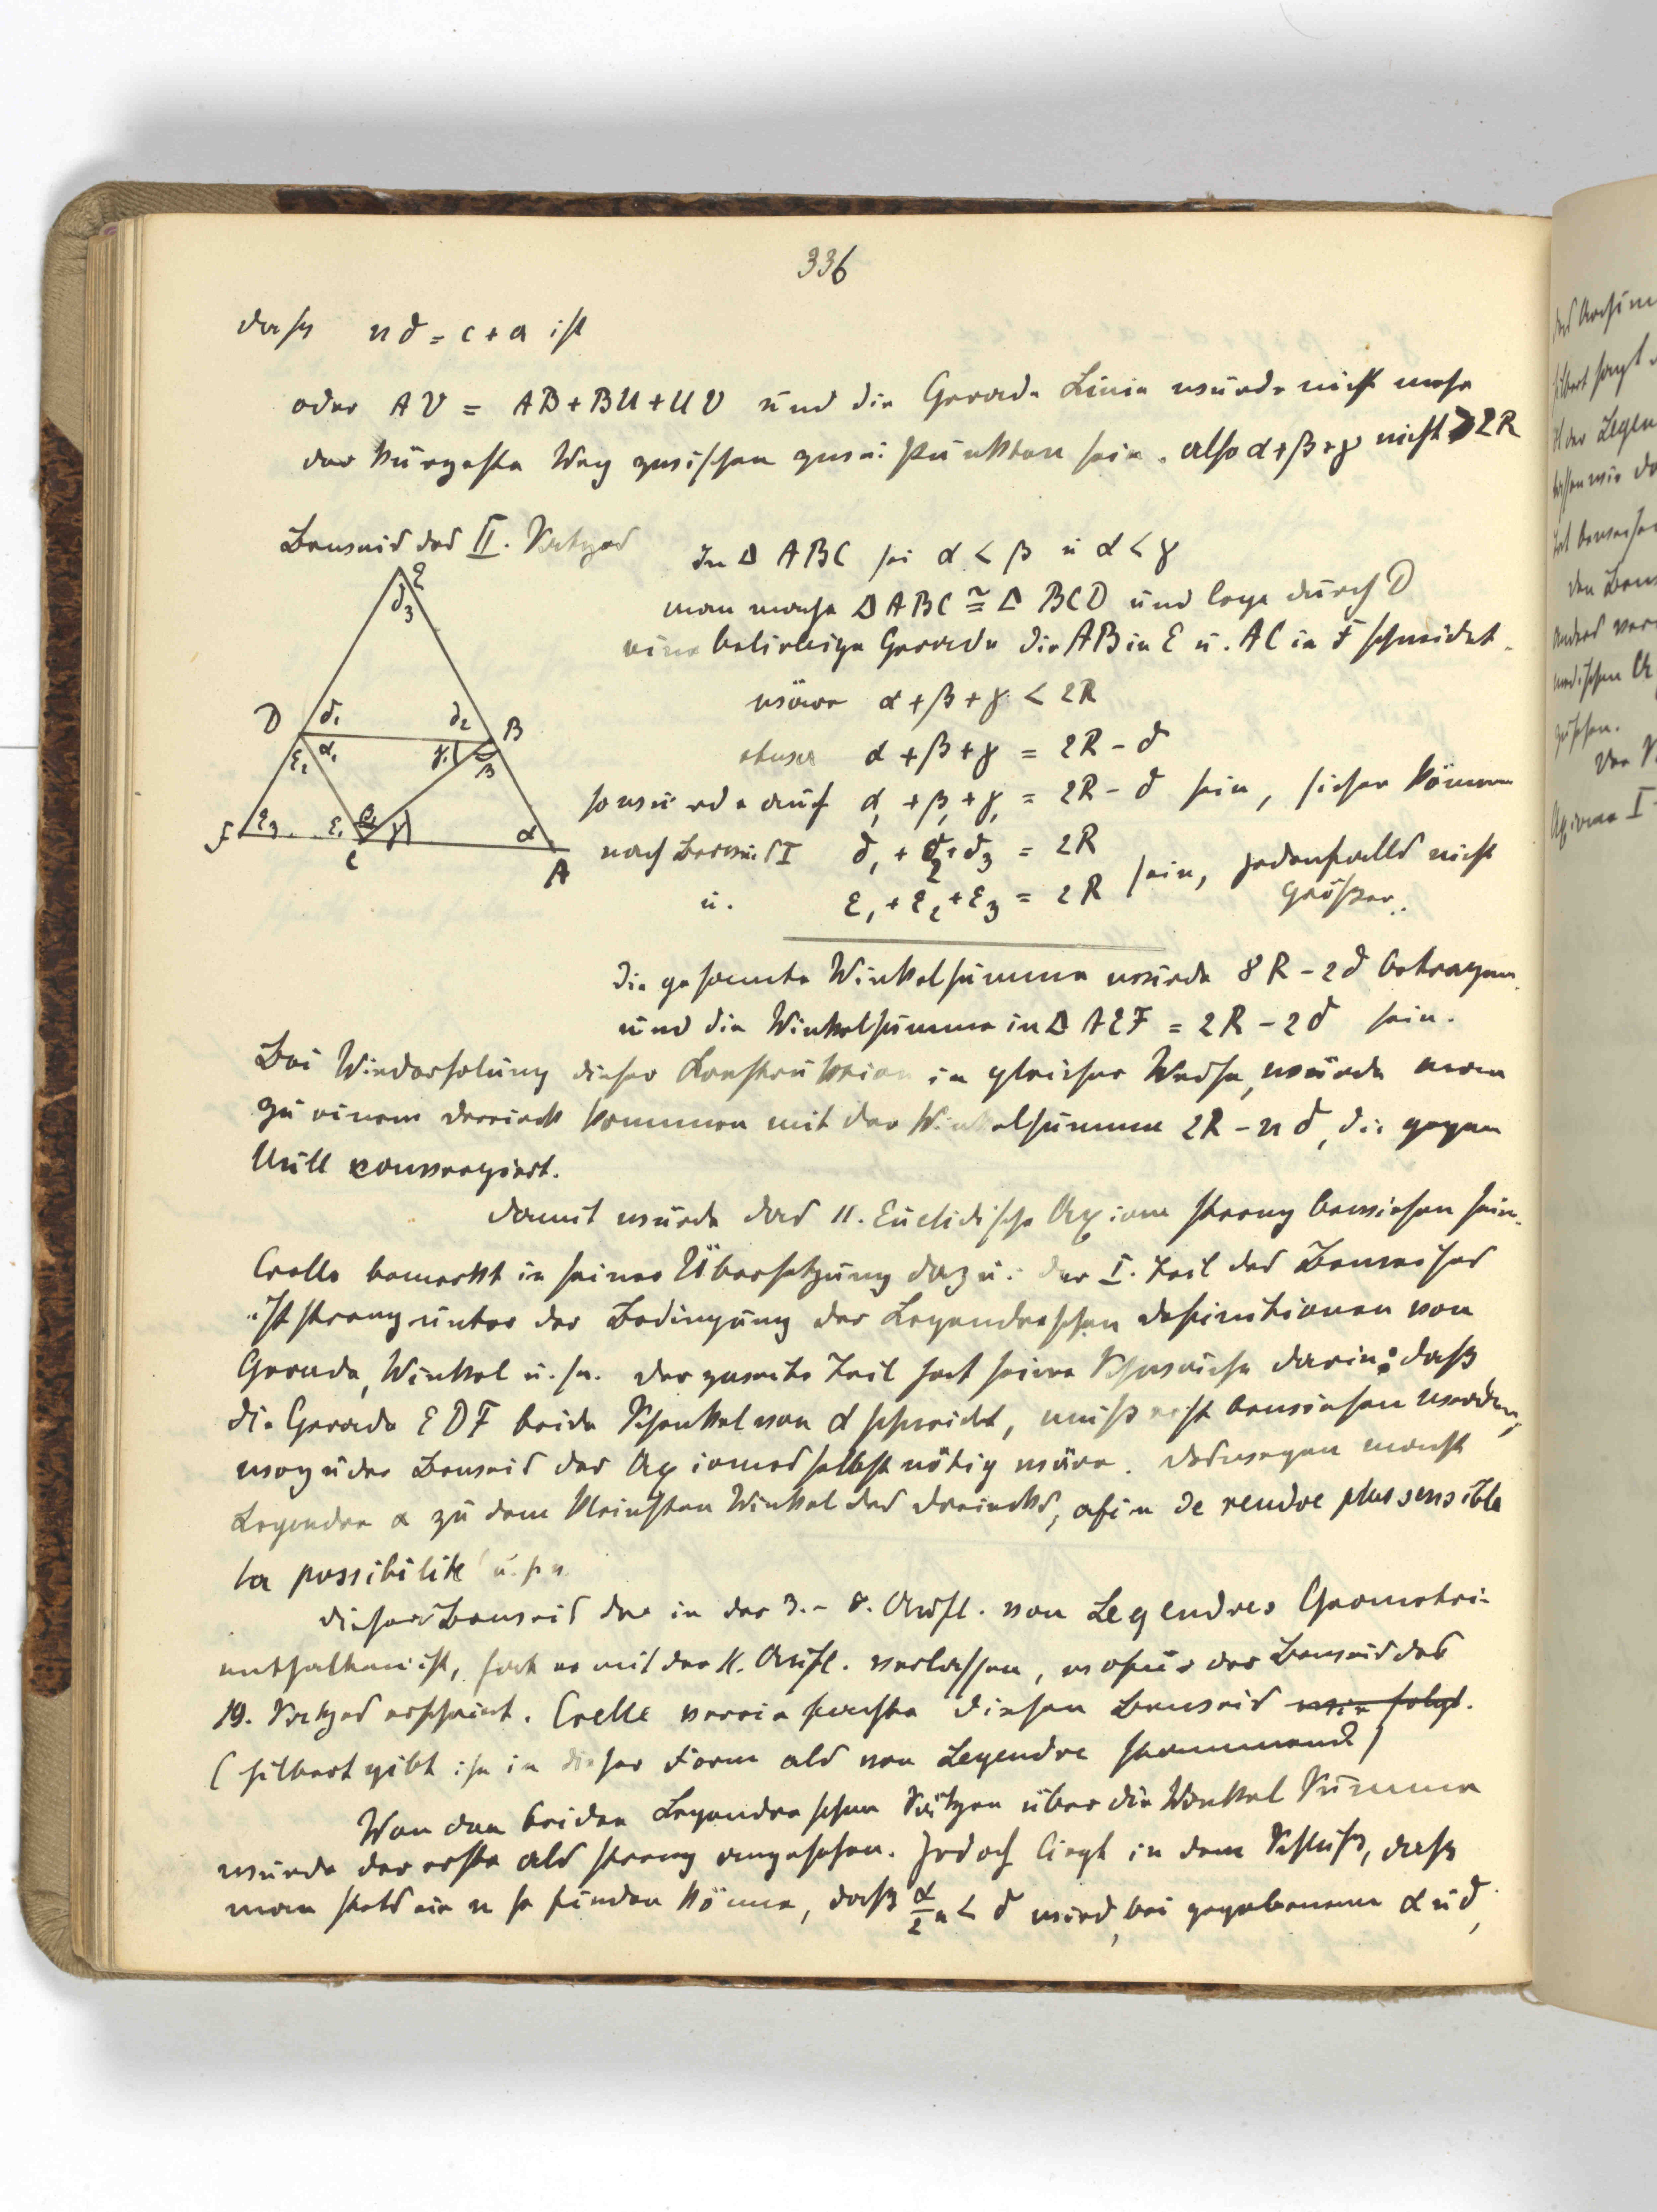 336
dass nδ = c + a ist
oder AV = AB + BU + UV und die Gerade Linie würde nicht mehr
der kürzeste Weg zwischen zwei Punkten sein. also α + β + γ nicht > 2R
Beweis des II. Satzes
In Δ ABC sei α < β u α < γ
man mache Δ ABC ≅ Δ BCD und lege durch D
eine beliebige Gerade die AB in E u. AC in F schneidet.
wäre α + β + γ < 2R
etwa α + β + γ = 2R - δ
so würde auch α, + β, + γ, = 2R - δ sein, sicher können
nach Beweis I δ, + δ2 + δ3 = 2R
u. ε, + ε2 + ε3 = 2R sein, jedenfalls nicht
größer.
E
δ3
D δ1 δ2 B
ε2 α1 γ1 β
F ε3 ε1 β1 γ α
C A
Die gesamte Winkelsumme würde 8R - 2δ betragen
und die Winkelsumme in Δ AEF = 2R - 2δ sein.
Bei Wiederholung dieser Konstruktion in gleicher Weise, würde man
zu einem Dreieck kommen mit der Winkelsumme 2R - nδ, die gegen
Null convergiert.
Damit würde das 11. Euclidische Axiom streng bewiesen sein.
Crelle bemerkt in seiner Übersetzung dazu: der I. Teil des Beweises
ist streng unter der Bedingung der Legendreschen Definitionen von
Gerade, Winkel u.sw. Der zweite Teil hat seine Schwäche darin: daß
die Gerade EDF beide Schenkel von α schneidet, muß erst bewiesen werden,
wozu der Beweis des Axiomes selbst nötig wäre. Deswegen macht
Legendre α zu dem kleinsten Winkel des Dreiecks, afin de rendre plus sensible
la possibilité u.sw.
Dieser Beweis der in der 3. - 8. Aufl. von Legendres Geometrie
enthalten ist, hat er mit der 11. Aufl. verlassen, wofür der Beweis des
19. Satzes erscheint. Crelle vereinfachte diesen Beweis wie folgt.
(Hilbert gibt ihn in dieser Form als von Legendre stammend)
Von den beiden Legendreschen Sätzen über die Winkel Summe
wurde der erste als streng angesehen. Jedoch liegt in dem Schluß, daß
man stets ein n so finden könne, daß α/2n < δ wird, bei gegebenem α u δ,